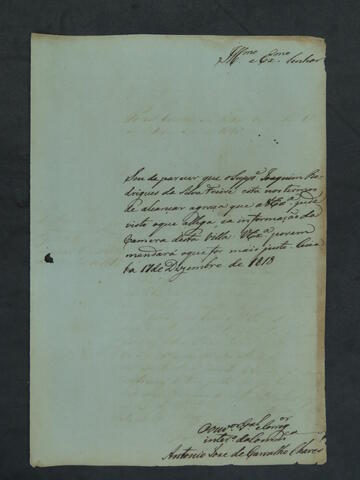 Illmo e Exmo Senhor
Sou de parecer que o Suppe Joaquim Ro-
drigues da Silva está nos termos
de alcançar a graça que a V Exa pede
visto o que allega e a informação da
Camera desta Villa. V Exa porem
mandará o que for mais justo.
ba 17 de Dezembro de 1813
O Ouvor
intero da Comca
Antonio Jose de Carvalho Chaves